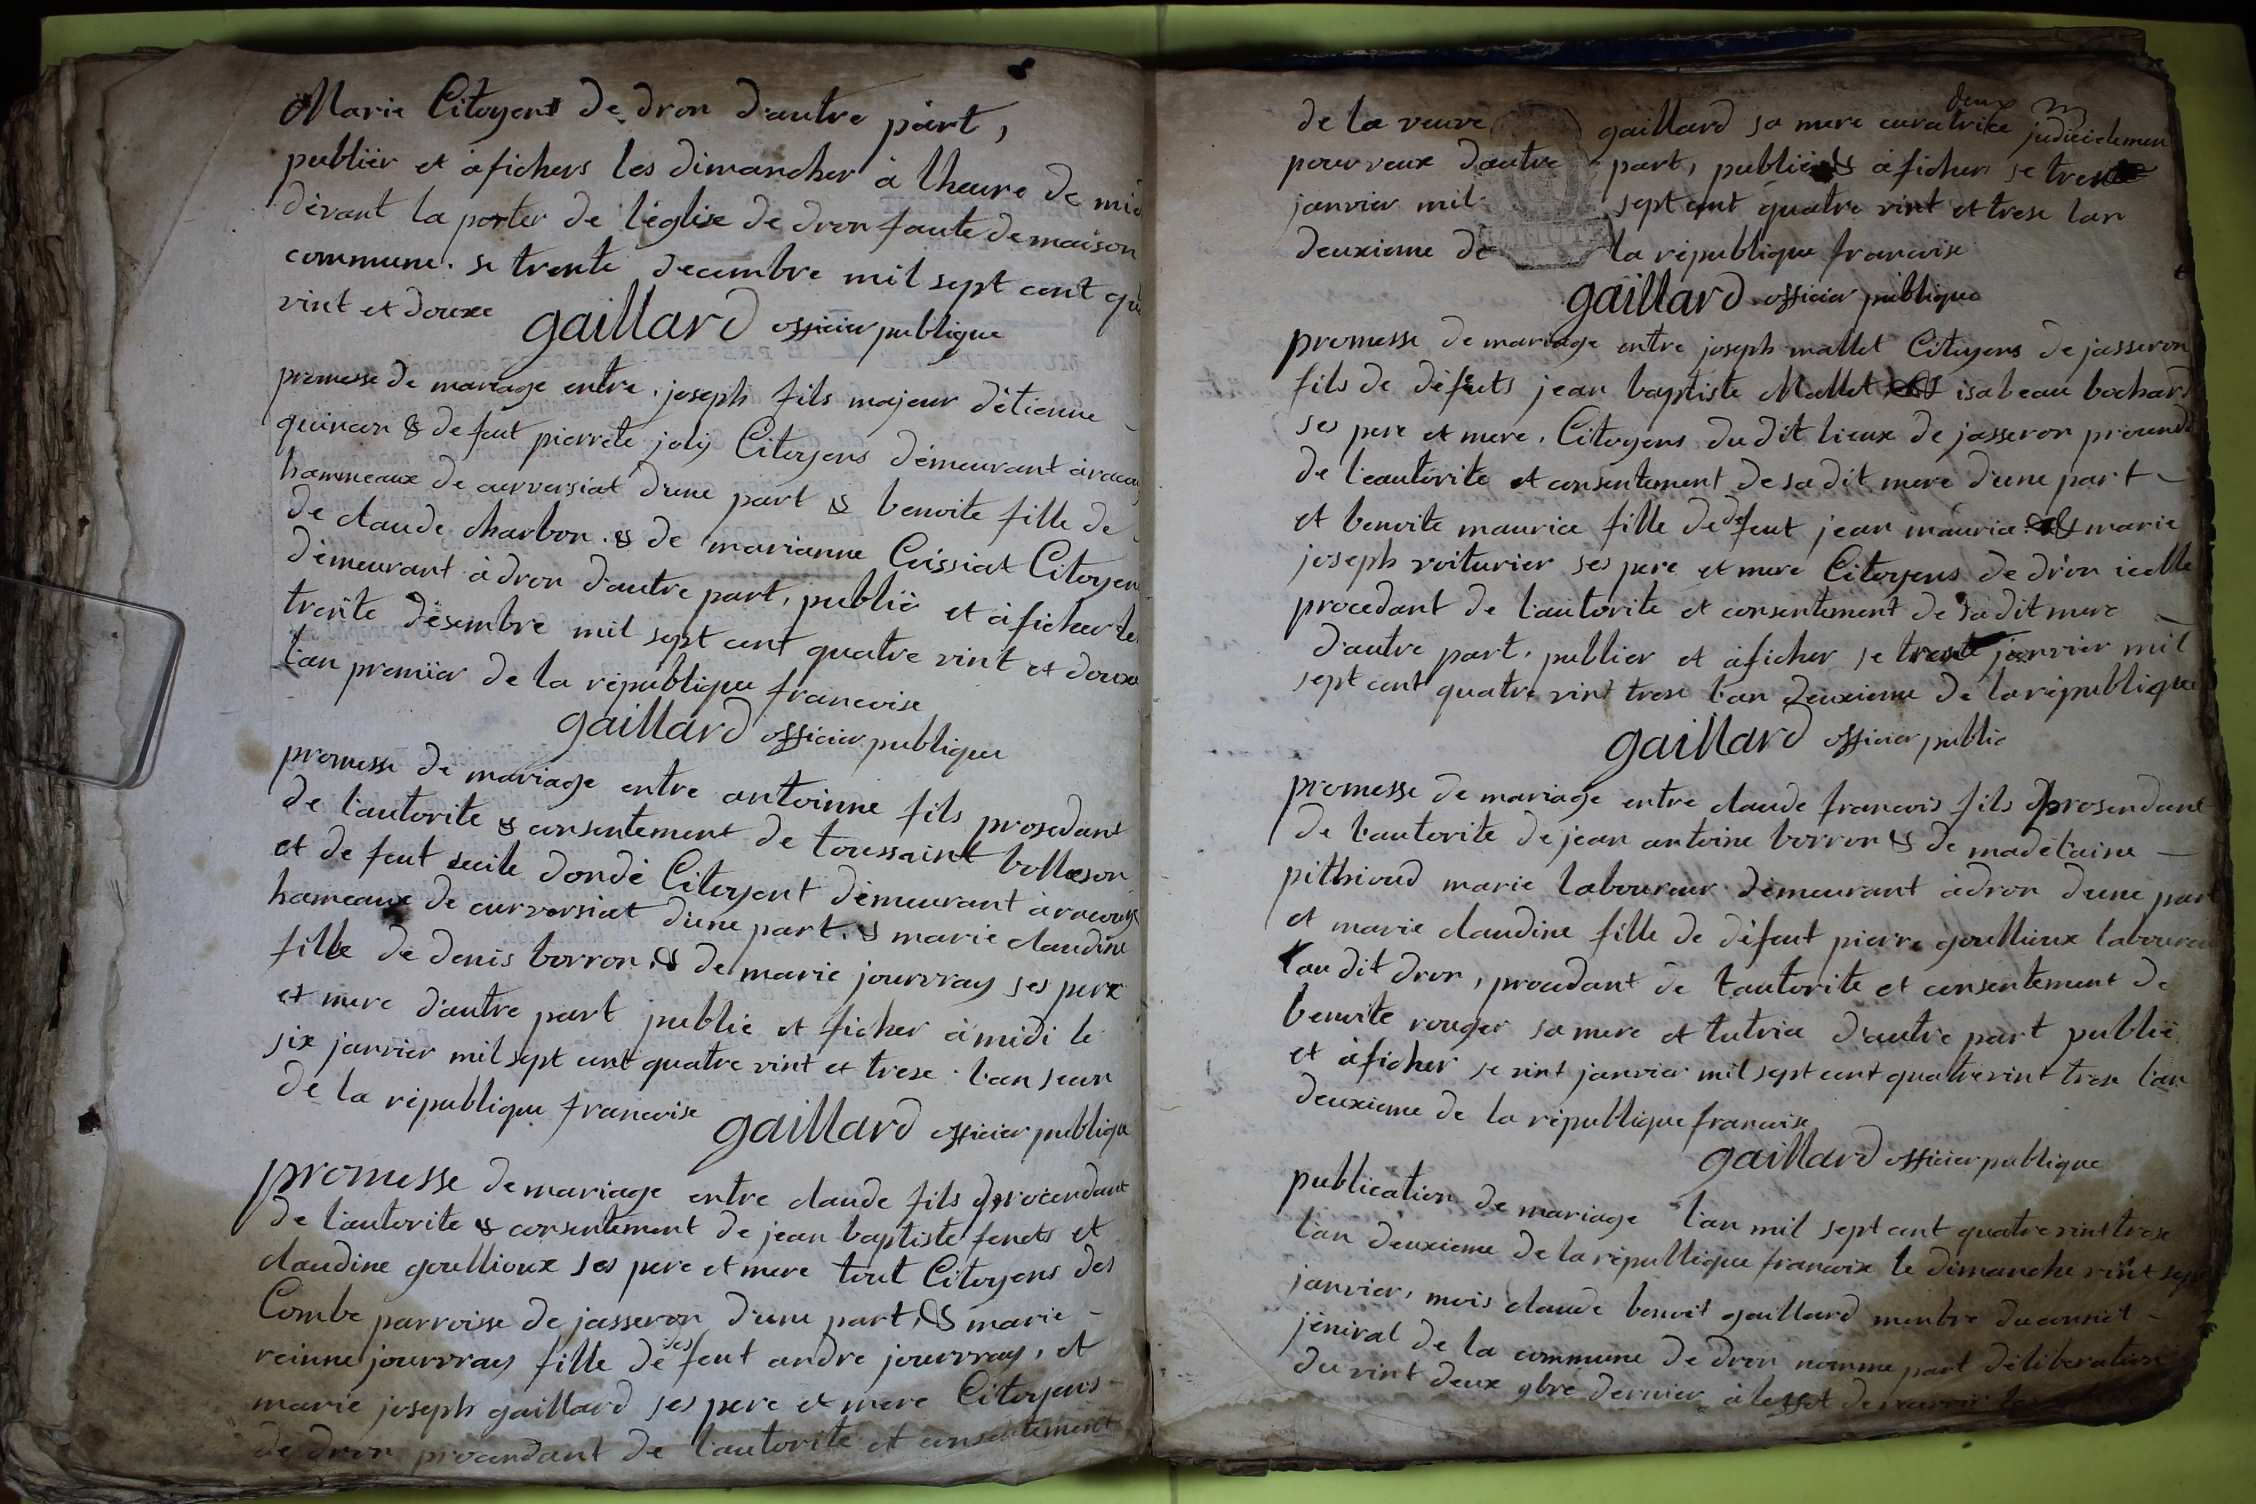 Marie Citoyens de dron dautre part,
publiër et àfichers les dimancher à lheure de mid
dèvant la porter de lèglise de dron faute de maison
commune. se trente decembre mil sept cent qu
vint et douxe gaillard officier publique
promesse de mariage entre. joseph fils majeur dètienne
quinson & defeut pierrete joly Citoyens dèmeurant à
hammeaux de curversiat dune part & benoite fille de
de claude charbon & de marianne Cuissiat Citoyen
dèmeurant à dron dautre part, publië et àficher le
trente dèsembre mil sept cent quatre vint et douxe
lan premïer de la rèpublique francoise
gaillard officier publique
promesse de mariage entre antoinne fils prosedant
de lautorite & consentement de toussaint bolleson
et de feut secile dondè Citoyent dèmeurant à racouse
hameaux de curversiat dune part. & marie claudine
fille de denis borron. & de marie jourvray ses pere
et mere dautre part publië et ficher à midi le
six janvier mil sept cent quatre vint et trese. lan
de la rèpublique francoise gaillard officier publique
promesse de mariage entre claude fils procendant
de lautorite & consentement de jean baptiste fenets et
claudine goullioux ses pere et mere tout Citoyens des
Combe parroisse de jasseron dune part, & marie
reinne jourvray fille dè des feut andre jourvray, et
marie joseph gaillard ses pere et mere Citoyens
de dron procendant de lautorite et consentement
de la veuve gaillard sa mere curatrice judicielemen
deux
pourveux dautre part, publië & àficher se trente
janvier mil sept cent quatre vint et trese lan
deuxieme de la rèpublique francoise
gaillard officier publique
promesse de mariage entre joseph mallet Citoyens de jasseron
fils de dèfeuts jean baptiste Mallet & isabeau bochard
ses pere et mere. Citoyens du dit lieux de jasseron
de leautorite et consentement de sa dit mere dune part
et benoite maurice fille de defeut jean maurice & marie
joseph voiturier ses pere et mere Citoyens de dron icelle
procedant de lautorite et consentement de sa dit mere
dautre part. publier et àficher se trente janvier mil
sept cent quatre vint trese lan deuxieme de la rèpublique
gaillard officier public
promesse de mariage entre claude francois fils prosendant
de lautorite de jean antoine borron & de madelaine
pithioud marie laboureur dèmeurant àdron dune part
et marie claudine fille de dèfeut pierre goullioux laboureu
au dit dron, procedant de lautorite et consentement de
benoite rouger sa mere et tutrice dautre part publië
et àficher se vint janvier mil sept cent quatre vint trese lan
deuxieme de la rèpublique francoise
gaillard officier publique
publication de mariage lan mil sept cent quatre vint trese
lan deuxieme de la rèpublique francoise le dimanche vint sept
janvier, mois claude benoit gaillard menbre du conset
jèniral de la commune de dron nomme part dèliberation
du vint deux 9bre dernier à leffet de